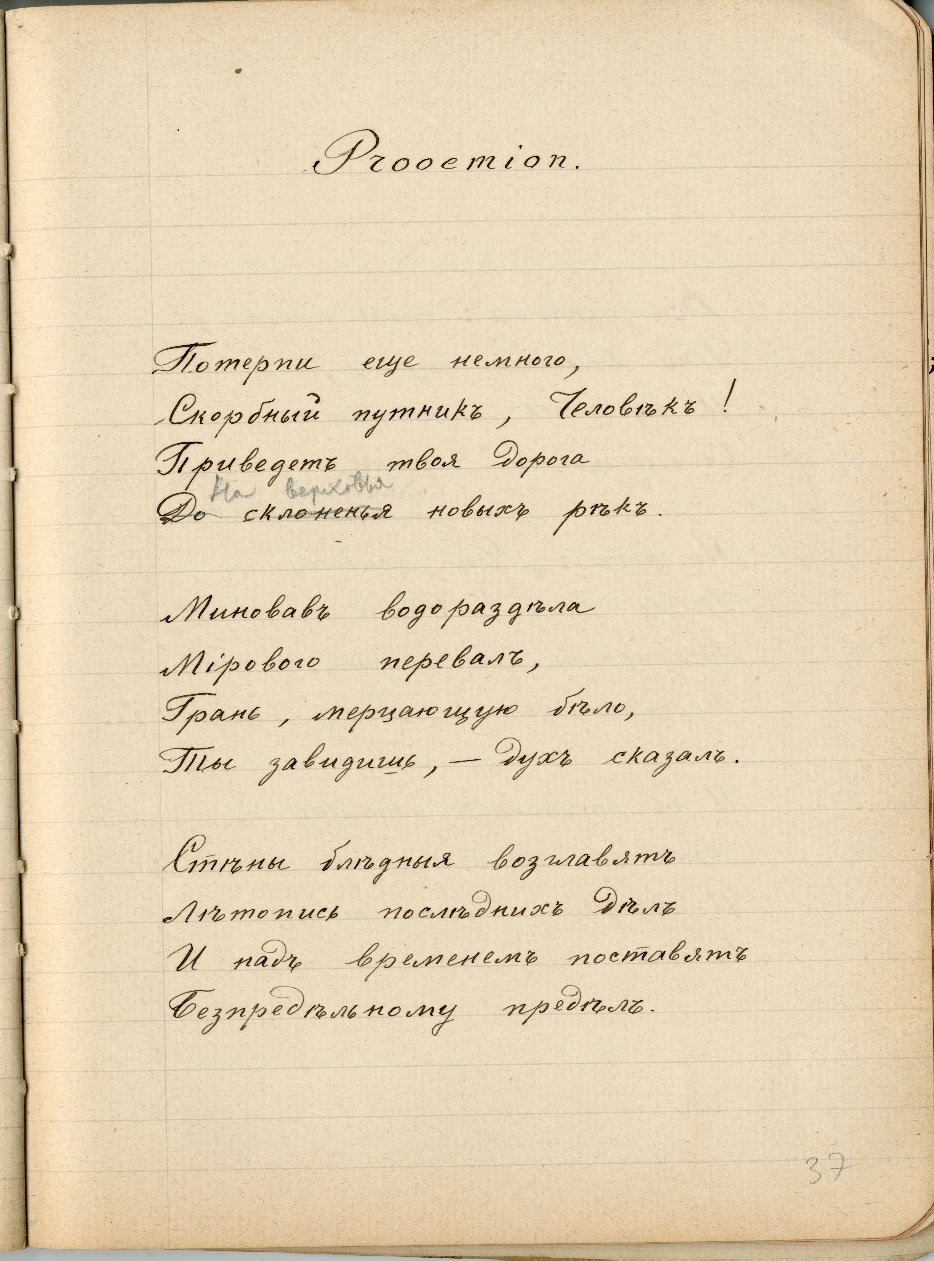 Prooemion.
Потерпи еще немного,
Скорбный путникъ, Человѣкъ!
Приведетъ твоя дорога
На верховья
До склоненья новыхъ рѣкъ.
Миновавъ водораздѣла
Мірового перевалъ,
Грань, мерцающую бѣло,
Ты завидишь, — духъ сказалъ.
Стѣны блѣдныя возглавятъ
Лѣтопись послѣднихъ дѣлъ
И надъ временемъ поставятъ
Безпредѣльному предѣлъ.
37